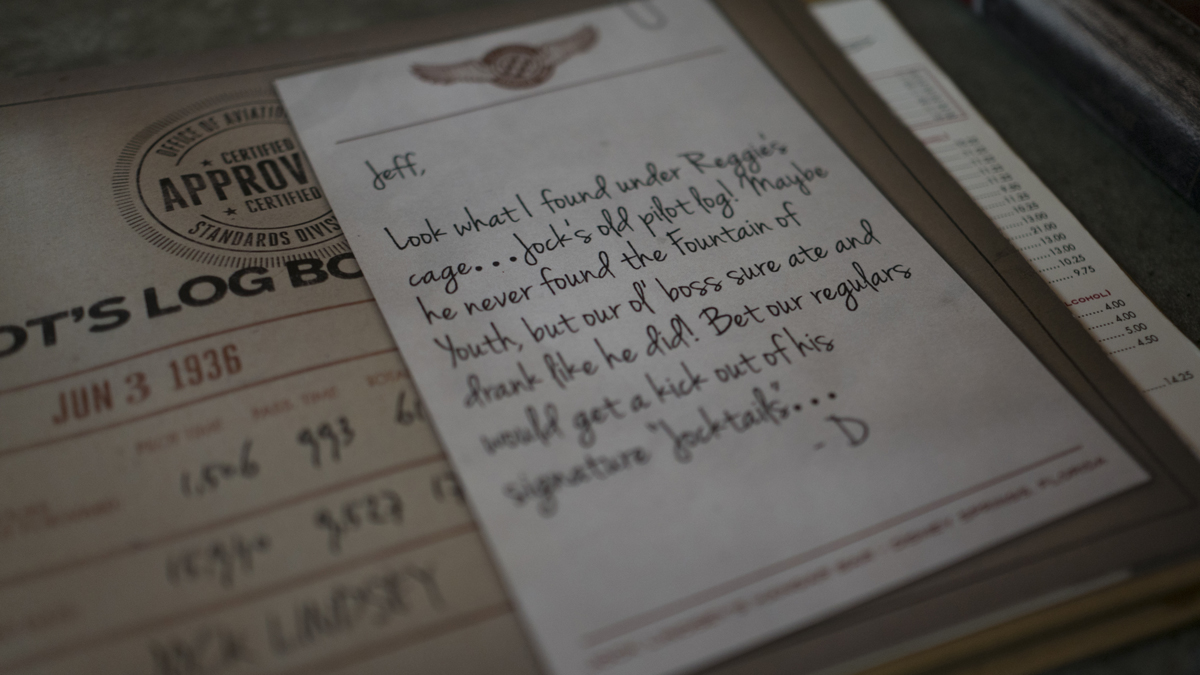 Jeff,
Look what I found under Reggie's
cage...Jock's old pilot log! Maybe
he never found the Fountain of
Youth, but our ol' boss sure ate and
drank like he did! Bet our regulars
would get a kick out of his
signature "Jocktails"...
- D
OFFICE OF AVIATION
CERTIFIED
APPROV
CERTIFIED
STANDARDS DIVIS
OT'S LOG BO
JUN 3 1936
PASS. TIME
993
9,527
LINDSEY
SPRINGS, FLORIDA
11.25
10.25
13.00
21.00
13.00
13.00
10.25
9.75
ALCOHOL!
4.00
4.00
5.00
4.50
14.25